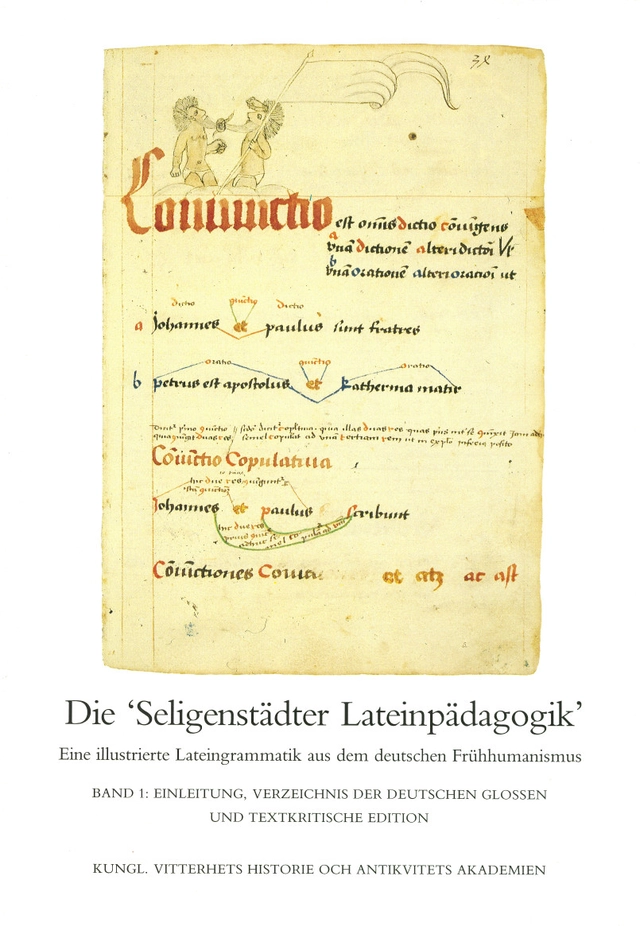 38
Coniunctio est omnis dictio cōiūgens
a
vnā dictionē alteri dictōi Vt
b
vnā orationē alteri oracioī ut
dictio cōiūctio dictio
a Johannes et paulus sunt fratres
oratio cōiūctio oratio
b Petrus est apostolus et Katherina matir
Cōiūctio Copulatiua
Johannes et paulus scribunt
Cōiūctiones et atq ac ast
Die ‘Seligenstädter Lateinpädagogik’
Eine illustrierte Lateingrammatik aus dem deutschen Frühhumanismus
BAND 1: EINLEITUNG, VERZEICHNIS DER DEUTSCHEN GLOSSEN
UND TEXTKRITISCHE EDITION
KUNGL. VITTERHETS HISTORIE OCH ANTIKVITETS AKADEMIEN